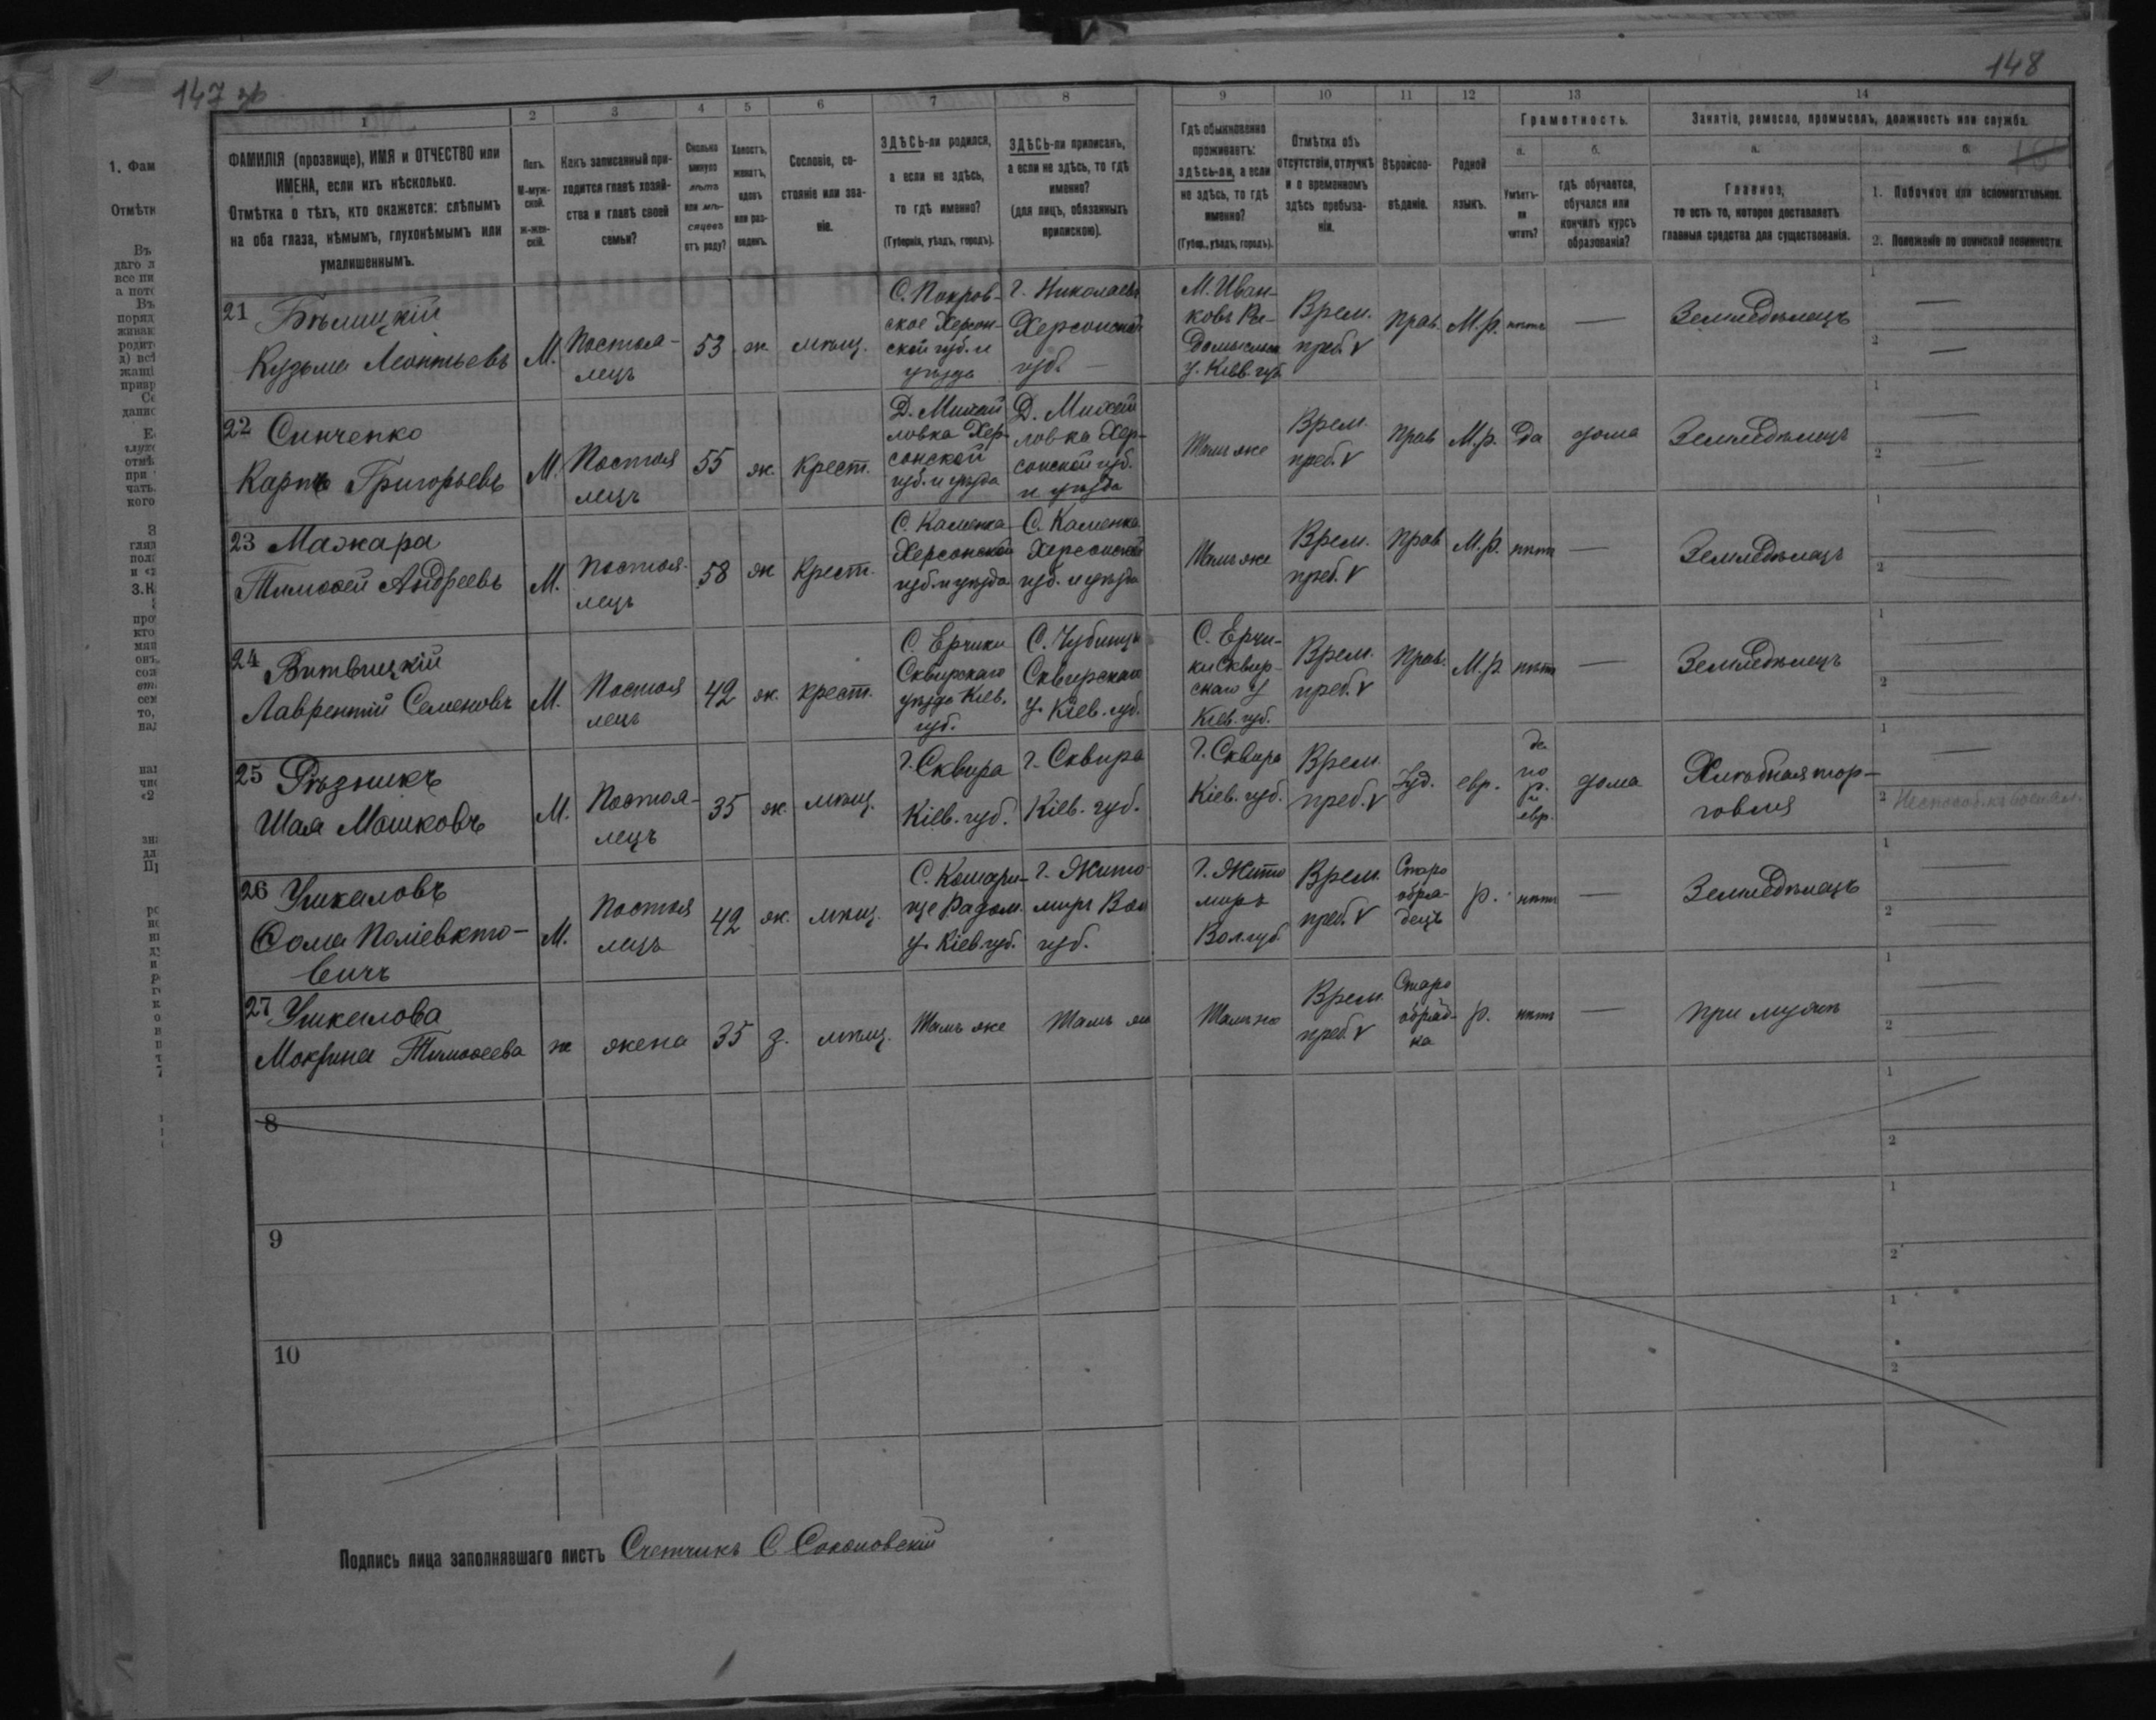 147 зв
148
1
2
3
4
5
6
7
8
9
10
11
12
13
14
ФАМИЛІЯ (прозвище), ИМЯ и ОТЧЕСТВО или
ИМЕНА, если ихъ нѣсколько.
Отмѣтка о тѣхъ, кто окажется: слѣпымъ
на оба глаза, нѣмымъ, глухонѣмымъ или
умалишеннымъ.
Полъ.
М-муж-
ской.
ж-жен-
скій.
Какъ записанный при-
ходится главѣ хозяй-
ства и главѣ своей
семьи?
Сколько
минуло
лѣтъ
или мѣ-
сяцевъ
отъ роду?
Холостъ,
женатъ,
вдовъ
или раз-
веденъ.
Сословіе, со-
стояніе или зва-
ніе.
ЗДѢСЬ-ли родился,
а если не здѣсь,
то гдѣ именно?
(Губернія, уѣздъ, городъ).
ЗДѢСЬ-ли приписанъ,
а если не здѣсь, то гдѣ
именно?
(для лицъ, обязанныхъ
припискою).
Гдѣ обыкновенно
проживаетъ:
здѣсь-ли, а если
не здѣсь, то гдѣ
именно?
(Губер., уѣздъ, городъ).
Отмѣтка объ
отсутствіи, отлучкѣ
и о временномъ
здѣсь пребыва-
ніи.
Вѣроиспо-
вѣданіе.
Родной
языкъ.
Грамотность.
а.
Умѣетъ-
ли
читать?
б.
гдѣ обучается,
обучался или
кончилъ курсъ
образованія?
Занятіе, ремесло, промыселъ, должность или служба.
а.
Главное,
то есть то, которое доставляетъ
главныя средства для существованія.
б.
1. Побочное или вспомогательное.
2. Положеніе по воинской повинности.
21 Бѣлицкій
Кузьма Леонтьевъ
М.
Постоя-
лецъ
53
ж.
мѣщ.
С. Покров-
ское Херсон-
ской губ. и
уѣзда
г. Николаевъ
Херсонской
губ.
М. Иван-
ковъ Ра-
домысльск
у. Кіев. губ.
Врем.
преб. V
прав.
М.р.
нѣтъ
—
Земледѣлецъ
1 —
2 —
22 Синченко
Карпъ Григорьевъ
М.
Постоя
лецъ
55
ж.
Крест.
Д. Михай
ловка Хер-
сонской
губ. и уѣзда
Д. Михай
ловка Хер-
сонской губ.
и уѣзда
Тамъ же
Врем.
преб. V
прав
М.р.
Да
дома
Земледѣлецъ
1 —
2 —
23 Мажара
Тимоѳей Андреевъ
М.
Постоя-
лецъ
58
ж
Крест.
С. Каменка
Херсонской
губ. и уѣзда
С. Каменка
Херсонской
губ. и уѣзда
Тамъ же
Врем.
преб. V
прав
М.р.
нѣтъ
—
Земледѣлецъ
1 —
2 —
24 Витвицкій
Лаврентій Семеновъ
М.
Постоя
лецъ
42
ж.
крест.
С. Ерчики
Сквирскаго
уѣзда Кіев.
губ.
Сквирскаго
у. Кіев. губ.
С. Ерчи-
ки Сквир-
скаго у
Кіев. губ.
Врем.
преб. V
Прав.
М.р
нѣтъ
—
Земледѣлецъ
1 —
2 —
25 Рѣзникъ
Шая Мошковъ
М.
Постоя-
лецъ
35
ж.
мѣщ.
г. Сквира
Кіев. губ.
г. Сквира
Кіев. губ.
г. Сквира
Кіев. губ.
Врем.
преб. V
Іуд.
евр.
да
по
р.
и
евр.
дома
Хлѣбная тор-
говля
1 —
2
26 Ушкаловъ
Ѳома Поліевкто-
вичъ
М.
Постоя
лецъ
42
ж.
мѣщ.
С. Кошари-
ще Радом.
у. Кіев. губ.
г. Жито-
миръ Вол
губ.
г. Жито
миръ
Вол. губ.
Врем.
преб. V
Старо
обря-
децъ
р.
нѣтъ
—
Земледѣлецъ
1 —
2 —
27 Ушкалова
Мокрина Тимоѳеева
ж
жена
35
з.
мѣщ.
Тамъ же
Тамъ же
Тамъ же
Врем.
преб. V
Старо
обряд-
ка
р.
нѣтъ
—
При мужѣ
1 —
2 —
8
1
2
9
1
2
10
1
2
Подпись лица заполнявшаго листъ Счетчикъ С Соколовскій